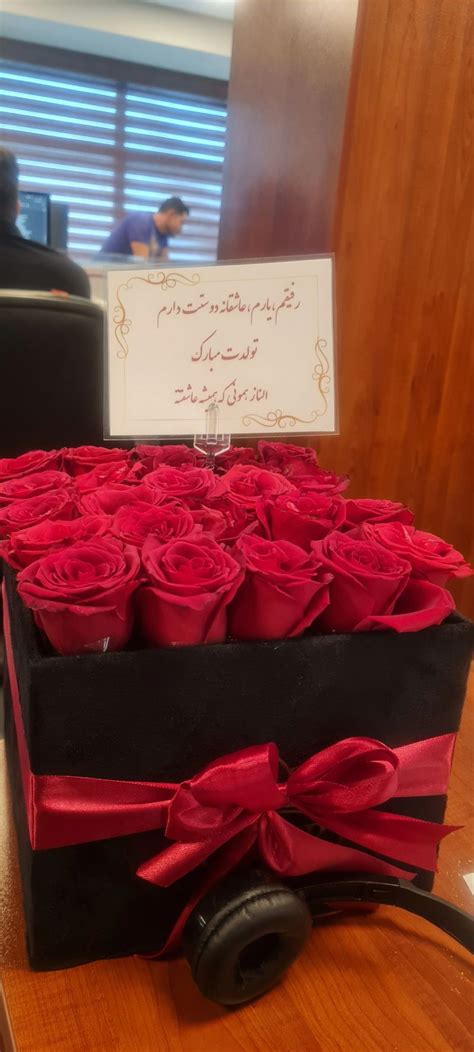 رفیقم ، یارم ، عاشقانه دوستت دارم
تولدت مبارک
الناز همونی که همیشه عاشقته